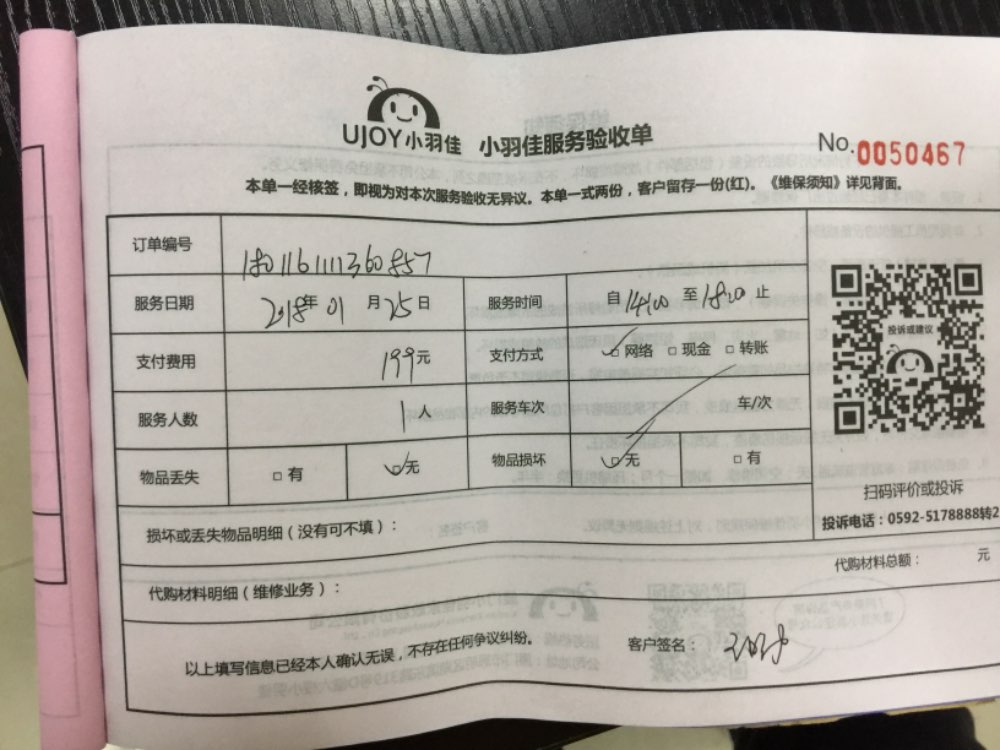 UJOY小羽佳 小羽佳服务验收单 No.0050467
本单一经核签，即视为对本次服务验收无异议。本单一式两份，客户留存一份(红)。《维保须知》详见背面。
订单编号
服务日期 2018年 01 月 25 日 服务时间 自 至 止
支付费用 199元 支付方式 ☑网络 □现金 □转账
服务人数 1人 服务车次 车/次
物品丢失 □有 ☑无 物品损坏 ☑无 □有
投诉或建议
扫码评价或投诉
投诉电话：0592-5178888转2
损坏或丢失物品明细（没有可不填）：
代购材料明细（维修业务）： 代购材料总额： 元
以上填写信息已经本人确认无误，不存在任何争议纠纷。 客户签名：